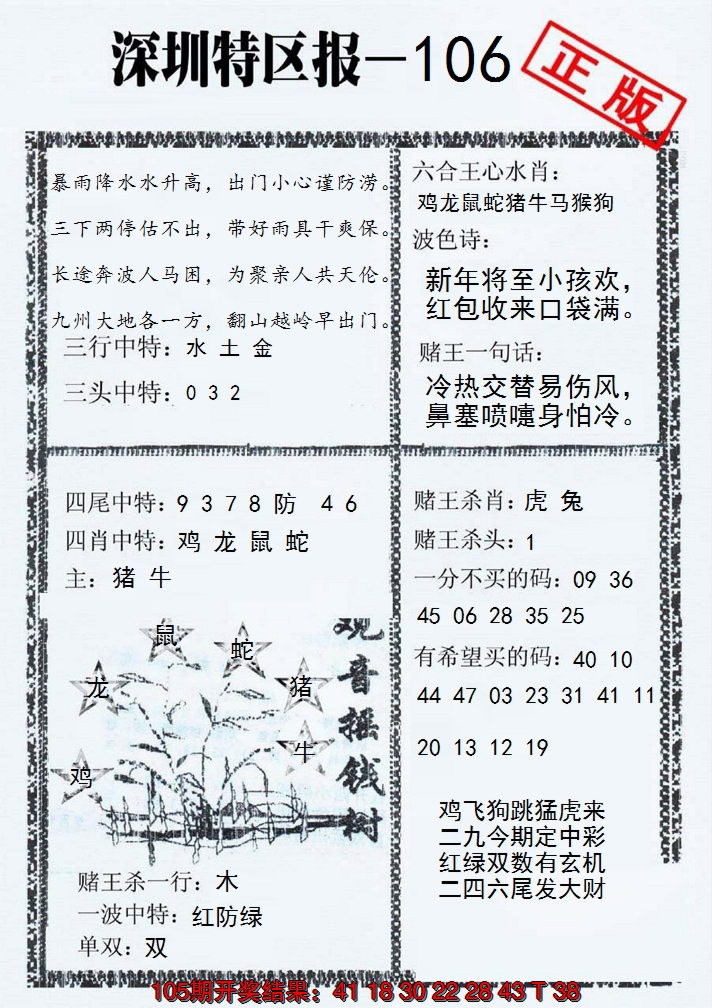 深圳特区报—106
正版
暴雨降水水升高，出门小心谨防涝。
三下两停估不出，带好雨具干爽保。
长途奔波人马困，为聚亲人共天伦。
九州大地各一方，翻山越岭早出门。
三行中特：水 土 金
三头中特：0 3 2
六合王心水肖：
鸡龙鼠蛇猪牛马猴狗
波色诗：
新年将至小孩欢，
红包收来口袋满。
赌王一句话：
冷热交替易伤风，
鼻塞喷嚏身怕冷。
四尾中特：9 3 7 8 防 4 6
四肖中特：鸡 龙 鼠 蛇
主：猪 牛
鼠
蛇
龙
猪
牛
鸡
观音摇钱树
赌王杀一行：木
一波中特：红防绿
单双：双
赌王杀肖：虎 兔
赌王杀头：1
一分不买的码：09 36
45 06 28 35 25
有希望买的码：40 10
44 47 03 23 31 41 11
20 13 12 19
鸡飞狗跳猛虎来
二九今期定中彩
红绿双数有玄机
二四六尾发大财
105期开奖结果：41 18 30 22 28 43 T 38